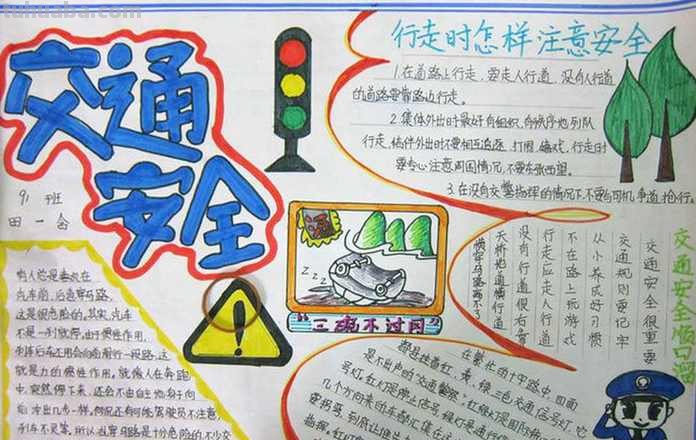 tuhuaba.com
交通
安全
91班
田一含
行走时怎样注意安全
1.在道路上行走，要走人行道，没有人行道
的道路要靠路边行走。
2.集体外出时最好有组织、有秩序地列队
行走，结伴外出时不要相互追逐、打闹、嬉戏，行走时
要专心注意周围情况，不要东张西望。
3.在没有交警指挥的情况下，不要与司机争道、抢行。
交通安全顺口溜
交通安全很重要
交通规则要记牢
从小养成好习惯
不在路上玩游戏
行走应走人行道
没有行道往右靠
天桥地道横行道
横穿马路
酒
zzz
"三碗不过冈"
有人总是喜欢在
汽车前，后急穿马路，
这是很危险的，其实，汽车
不是一刹就停，由于惯性作用，
刹车后车还会向前滑行一段路，这
就是力的惯性作用，就像人在奔跑
中，突然停下来，还会不由自主地
向前冲出几步一样，何况还有可能驾驶员不注意，
在繁忙的十字路中，四面
都悬挂着红、黄、绿三色交通信号灯，它
是不出声的"交通警察"。红绿灯是国际统一
号灯，红灯是停止信号，绿灯是通行信号
几个方向来的车都汇集在